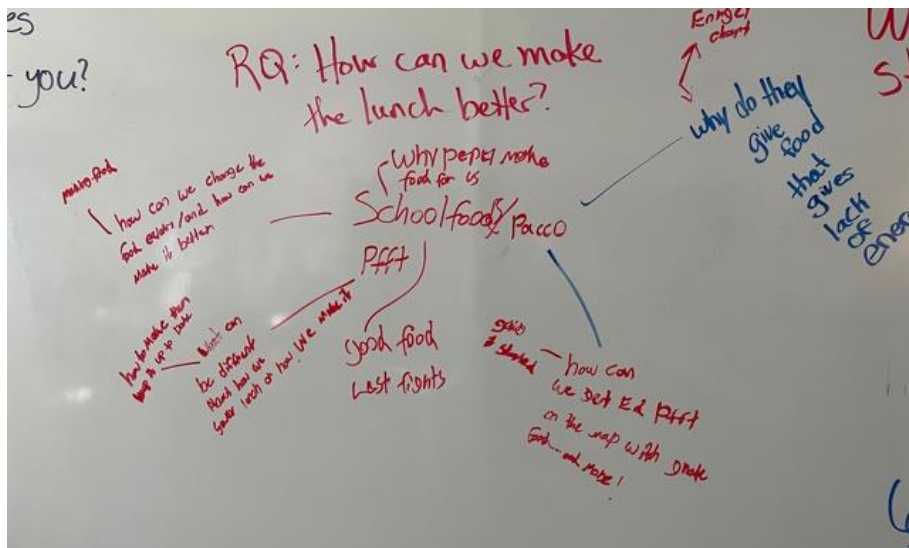 es
you?
RQ: How can we make
the lunch better?
Energy
chart
W
St
why do they
give
food
that
gives
lack
of
ener
why pepel make
food for us
School food/Pacco
Pfft
how can we change the
and how can we
make it better
how to make them
keep it up to date
what can
be different
about how we
lunch or how we make it
good food
Last fights
how can
we Ed Pfft
on the map with
food...and more!